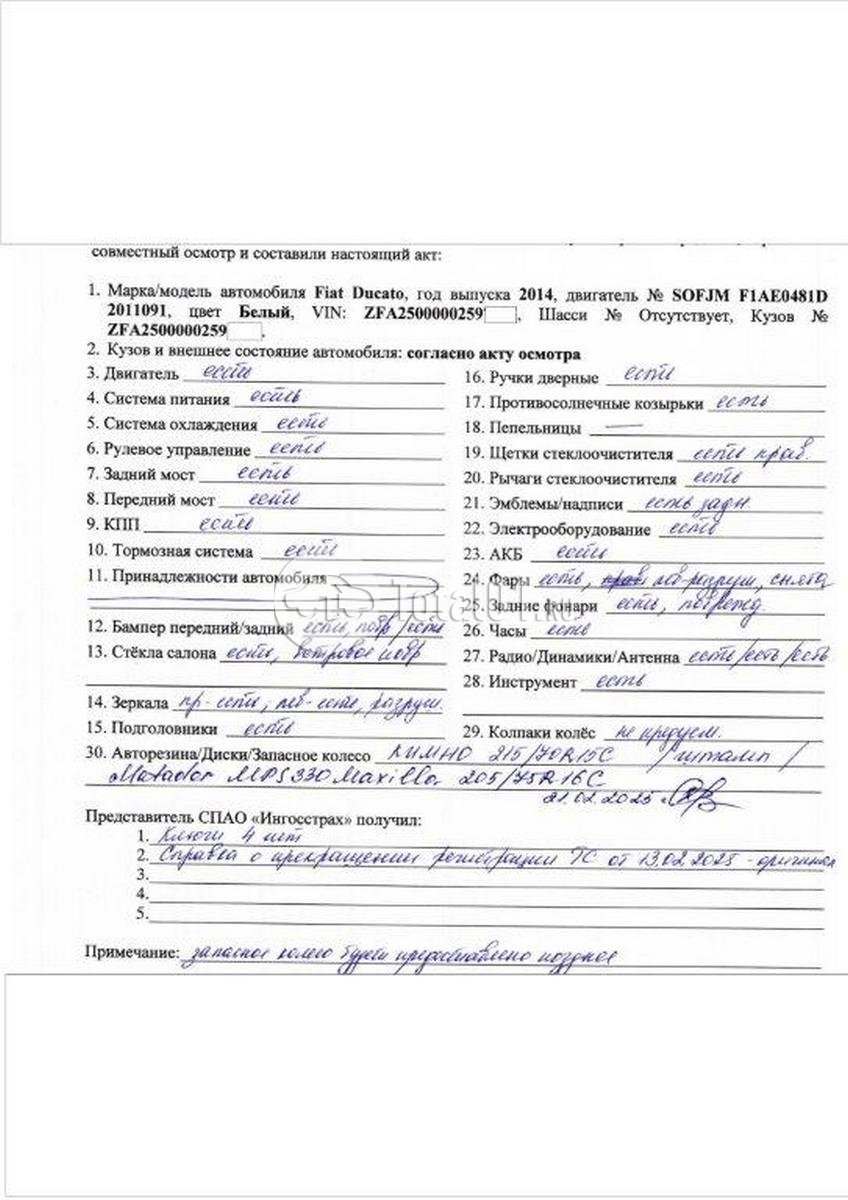 совместный осмотр и составили настоящий акт:
1. Марка/модель автомобиля Fiat Ducato, год выпуска 2014, двигатель № SOFJM F1AE0481D
2011091, цвет Белый, VIN: ZFA2500000259, Шасси № Отсутствует, Кузов №
ZFA2500000259.
2. Кузов и внешнее состояние автомобиля: согласно акту осмотра
3. Двигатель есть
4. Система питания есть
5. Система охлаждения есть
6. Рулевое управление есть
7. Задний мост есть
8. Передний мост есть
9. КПП есть
10. Тормозная система есть
11. Принадлежности автомобиля
12. Бампер передний/задний есть, повр/есть
13. Стёкла салона есть, ветровое повр
14. Зеркала пр-есть, лев-есть, разруш.
15. Подголовники есть
16. Ручки дверные есть
17. Противосолнечные козырьки есть
18. Пепельницы —
19. Щетки стеклоочистителя есть прав.
20. Рычаги стеклоочистителя есть
21. Эмблемы/надписи есть задн.
22. Электрооборудование есть
23. АКБ есть
24. Фары есть, лев-разруш, снята
25. Задние фонари есть, поврежд.
26. Часы есть
27. Радио/Динамики/Антенна есть/есть/есть
28. Инструмент есть
29. Колпаки колёс не предусм.
30. Авторезина/Диски/Запасное колесо КИМНО 215/70R15C /штамп/
Matador MPS330 Maxilla 205/75R16C
21.02.2025
Представитель СПАО «Ингосстрах» получил:
1. Ключи 4 шт
2. Справка о прекращении регистрации ТС от 13.02.2025 - оригинал
3.
4.
5.
Примечание: запасное колесо будет предоставлено позднее
Total01.ru